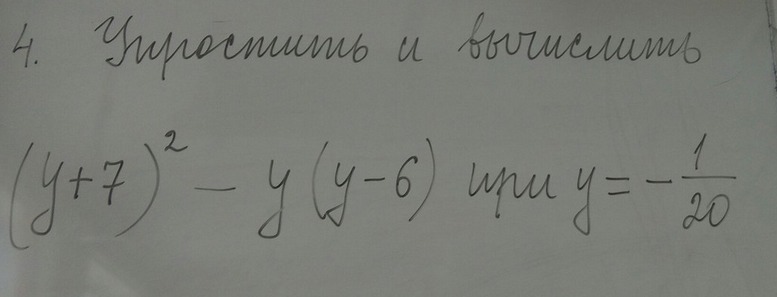 4. Упростить и вычислить
(y+7)² - y(y-6) при y = -1/20